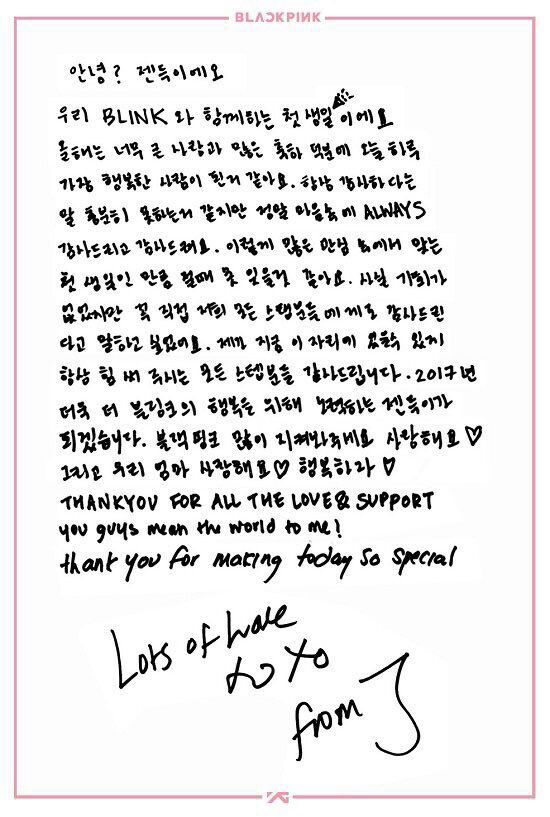 BLACKPINK
안녕? 젠득이에오
우리 BLINK와 함께하는 첫 생일이에요
올해는 너무 큰 사랑과 많은 축하 덕분에 오늘 하루
가장 행복한 사람이 된거 같아요. 항상 감사하다는
말 충분히 못하는거 같지만 정말 마음속에 ALWAYS
감사드리고 감사드려요. 이렇게 많은 관심 속에서 맞는
첫 생일인 만큼 절때 못 잊을것 같아요. 사실 기회가
없었지만 꼭 직접 저희 모든 스탭분들에게도 감사드린
다고 말하고 싶었어요. 제가 지금 이 자리에 있을수 있게
항상 힘 써 주시는 모든 스텝분들 감사드립니다. 2017년
더욱 더 블링크의 행복을 위해 노력하는 젠득이가
되겠습니다. 블랙핑크 많이 지켜봐주세요 사랑해요♡
그리고 우리 엄마 사랑해요♡ 행복하라 ♡
THANKYOU FOR ALL THE LOVE & SUPPORT
you guys mean the world to me!
thank you for making today so special
Lots of Love
xoxo
from J
YG